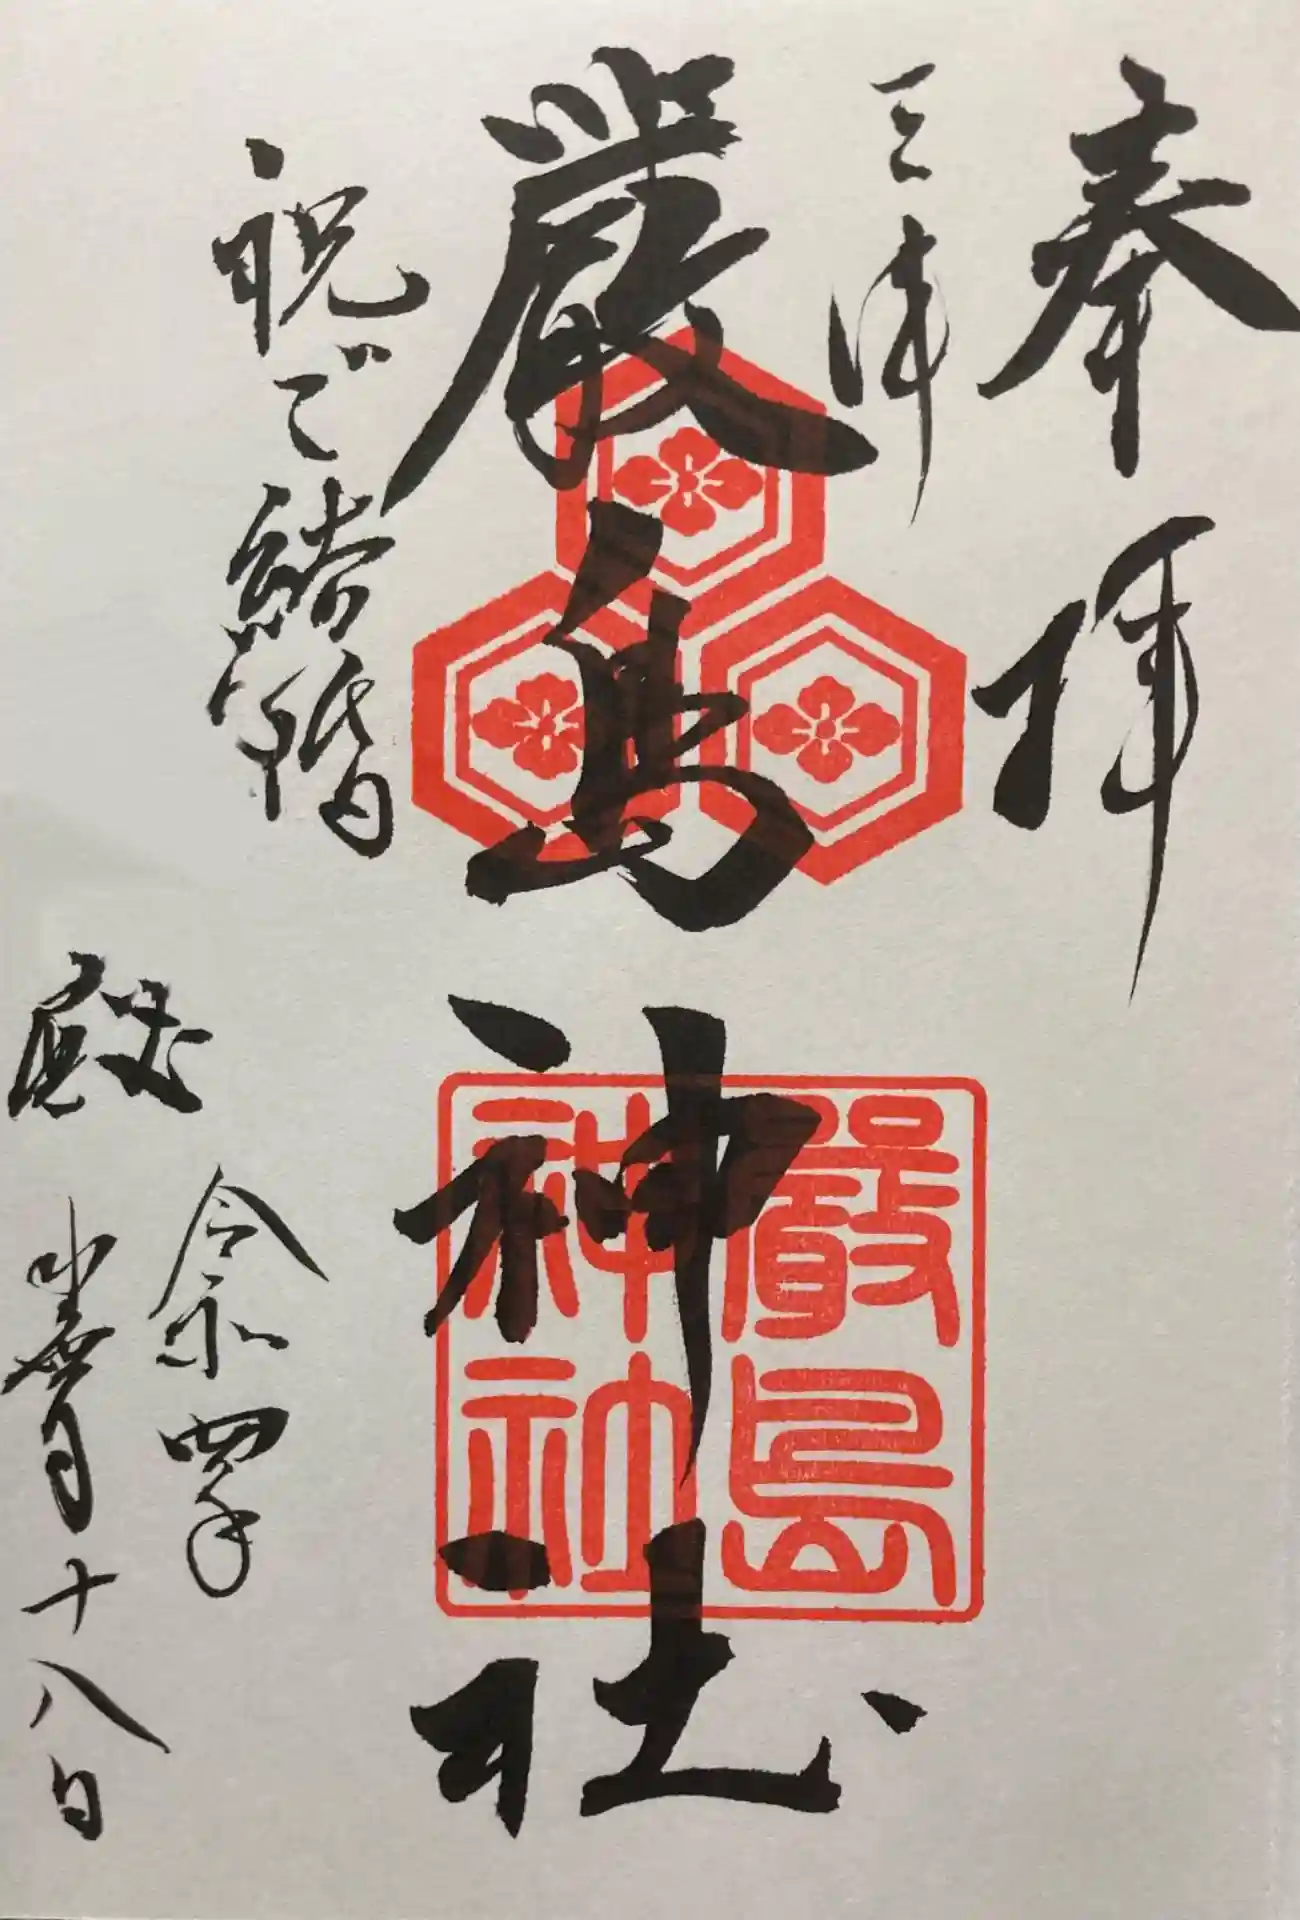 奉拝
三津
厳島神社
厳島
神社
祝ご結婚
殿
令和四年
霜月十八日